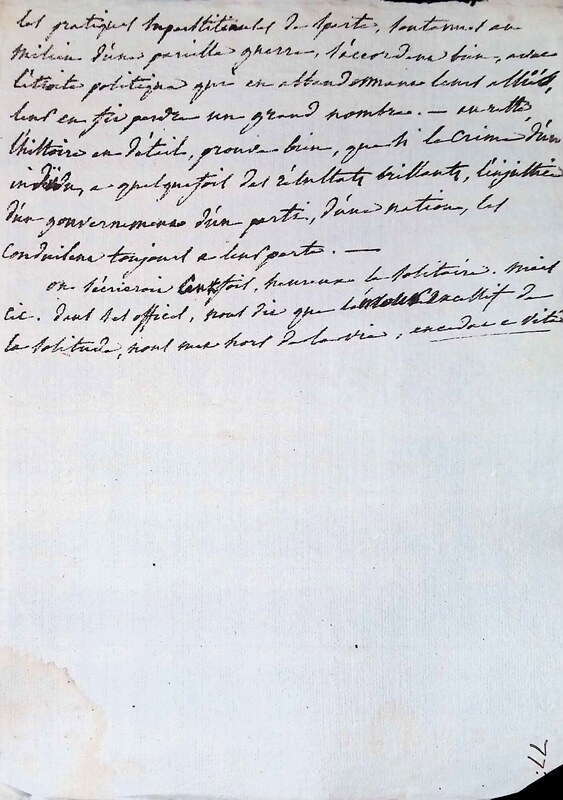 les pratiques superstitieuses de sparte, soutenues au
milieu d'une pareille guerre, s'accordent bien, avec
l'étroite politique qui en abandonnant leurs alliés,
leur en fit perdre un grand nombre. — au reste
l'histoire en détail, prouve bien, que si le crime d'un
individu, a quelquefois des résultats brillants, l'injustice
d'un gouvernement d'un parti, d'une nation, les
conduisent toujours a leur perte. —
on s'écrieroit cent fois, heureux le solitaire. mais
cic. dans ses offices, nous dit que l'amour excessif de
la solitude, nous met hors de la vie, excedat e vitâ
77.